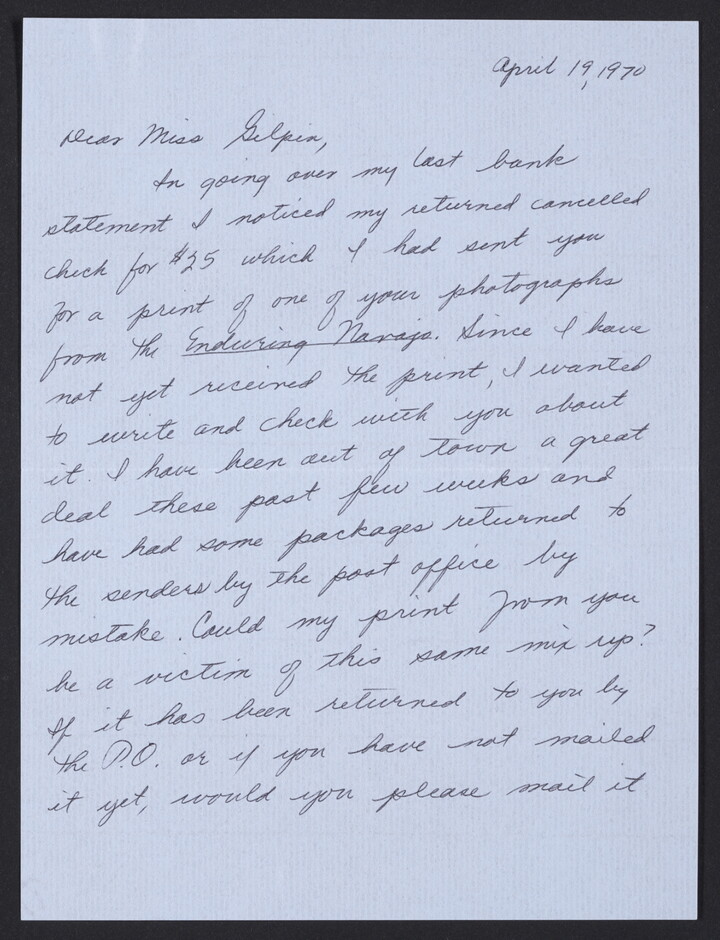 April 19, 1970
Dear Miss Gilpin,
In going over my last bank
statement I noticed my returned cancelled
check for $25 which I had sent you
for a print of one of your photographs
from the Enduring Navajo. Since I have
not yet received the print, I wanted
to write and check with you about
it. I have been out of town a great
deal these past few weeks and
have had some packages returned to
the senders by the post office by
mistake. Could my print from you
be a victim of this same mix up?
If it has been returned to you by
the P.O. or if you have not mailed
it yet, would you please mail it